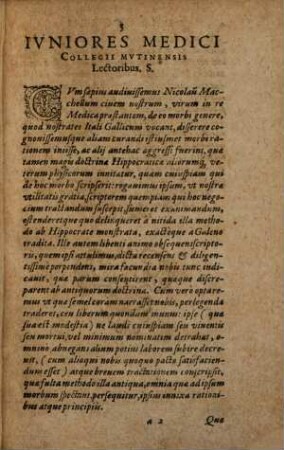 5
IVNIORES MEDICI
COLLEGII MVTINENSIS
Lectoribus. S.
CVm sæpius audiuissemus Nicolaũ Mac-
chellum ciuem nostrum, virum in re
Medica præstantem, de eo morbi genere,
quod nostrates Itali Gallicum vocant, disserere co-
gnouissemusque aliam curandi istiusmet morbi ra-
tionem iniisse, ac alij antehac aggressi fuerint, quæ
tamen magis doctrinæ Hippocraticæ aliorumq; ve-
terum physicorum innitatur, quam cuiuspiam qui
de hoc morbo scripserit: rogauimus ipsum, vt nostra
vtilitatis gratia, scriptorem quempiam qui hoc nego-
cium tractandum suscepit, sumeret examinandum,
ostenderetque quo delinqueret a nitida illa metho-
do ab Hippocrate monstrata, exactéque a Galeno
tradita. Ille autem libenti animo obsequens scripto-
rē, quem ipsi attulimus, dicta recensens & diligen-
tissime perpendens, mira facundia nobis tunc indi-
cauit, quæ parum consentirent, quæque discre-
parent ab antiquorum doctrina. Cum vero optare-
mus vt quæ semel coram narrasset nobis, perlegenda
traderet, ceu liberum quondam munus: ipse (quæ
sua est modestia) ne laudi cuiuspiam seu viuentis
seu mortui, vel minimum nominatim detrahat, o-
mnino abnegans alium potius laborem subire decre-
uit, (cum alioqui nobis quoquo pacto satisfacien-
dum esset) atque breuem tractationem conscripsit,
quæ fulta methodo illa antiqua, omnia quæ ad ipsum
morbum spectant, persequitur, ipsimet innixa rationi-
bus atque principiis.
a 2 Quæ